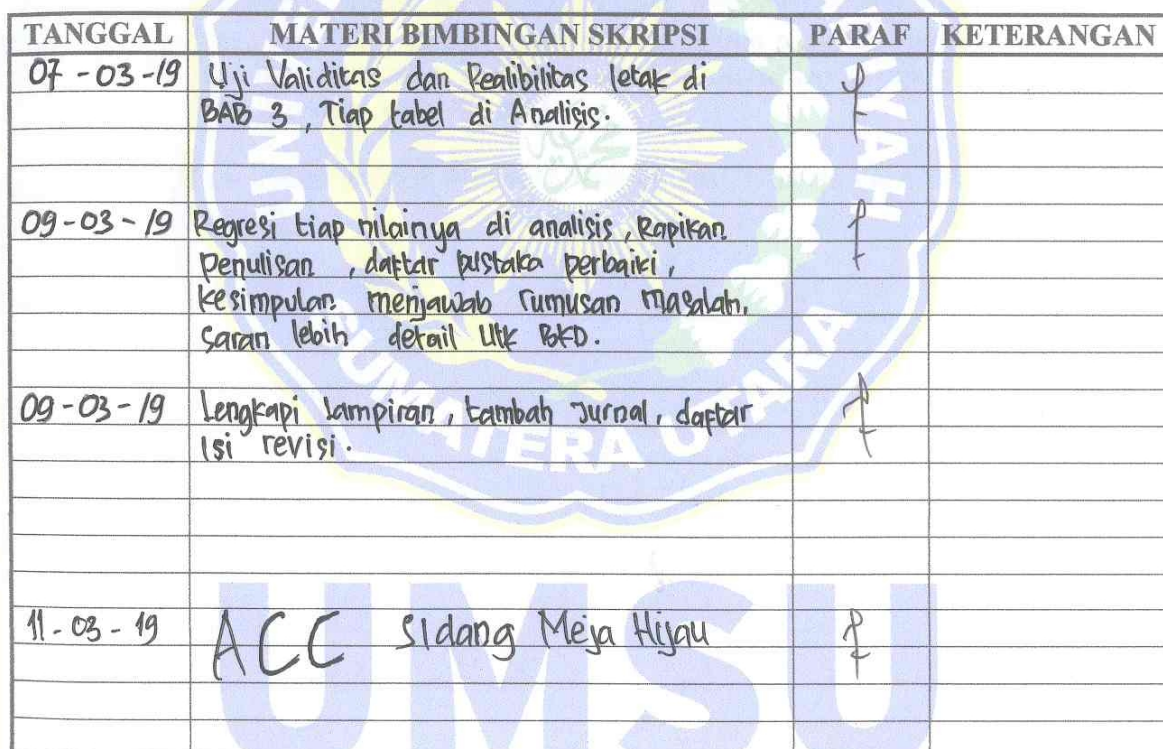 TANGGAL MATERI BIMBINGAN SKRIPSI PARAF KETERANGAN
07-03-19 Uji Validitas dan Realibilitas letak di
BAB 3, Tiap tabel di Analisis.
09-03-19 Regresi tiap nilainya di analisis, Rapikan
Penulisan, daftar pustaka perbaiki,
kesimpulan menjawab rumusan masalah,
saran lebih detail Utk BKD.
09-03-19 Lengkapi lampiran, tambah Jurnal, daftar
isi revisi.
11-03-19 ACC Sidang Meja Hijau
SUMATERA UTARA
UMSU